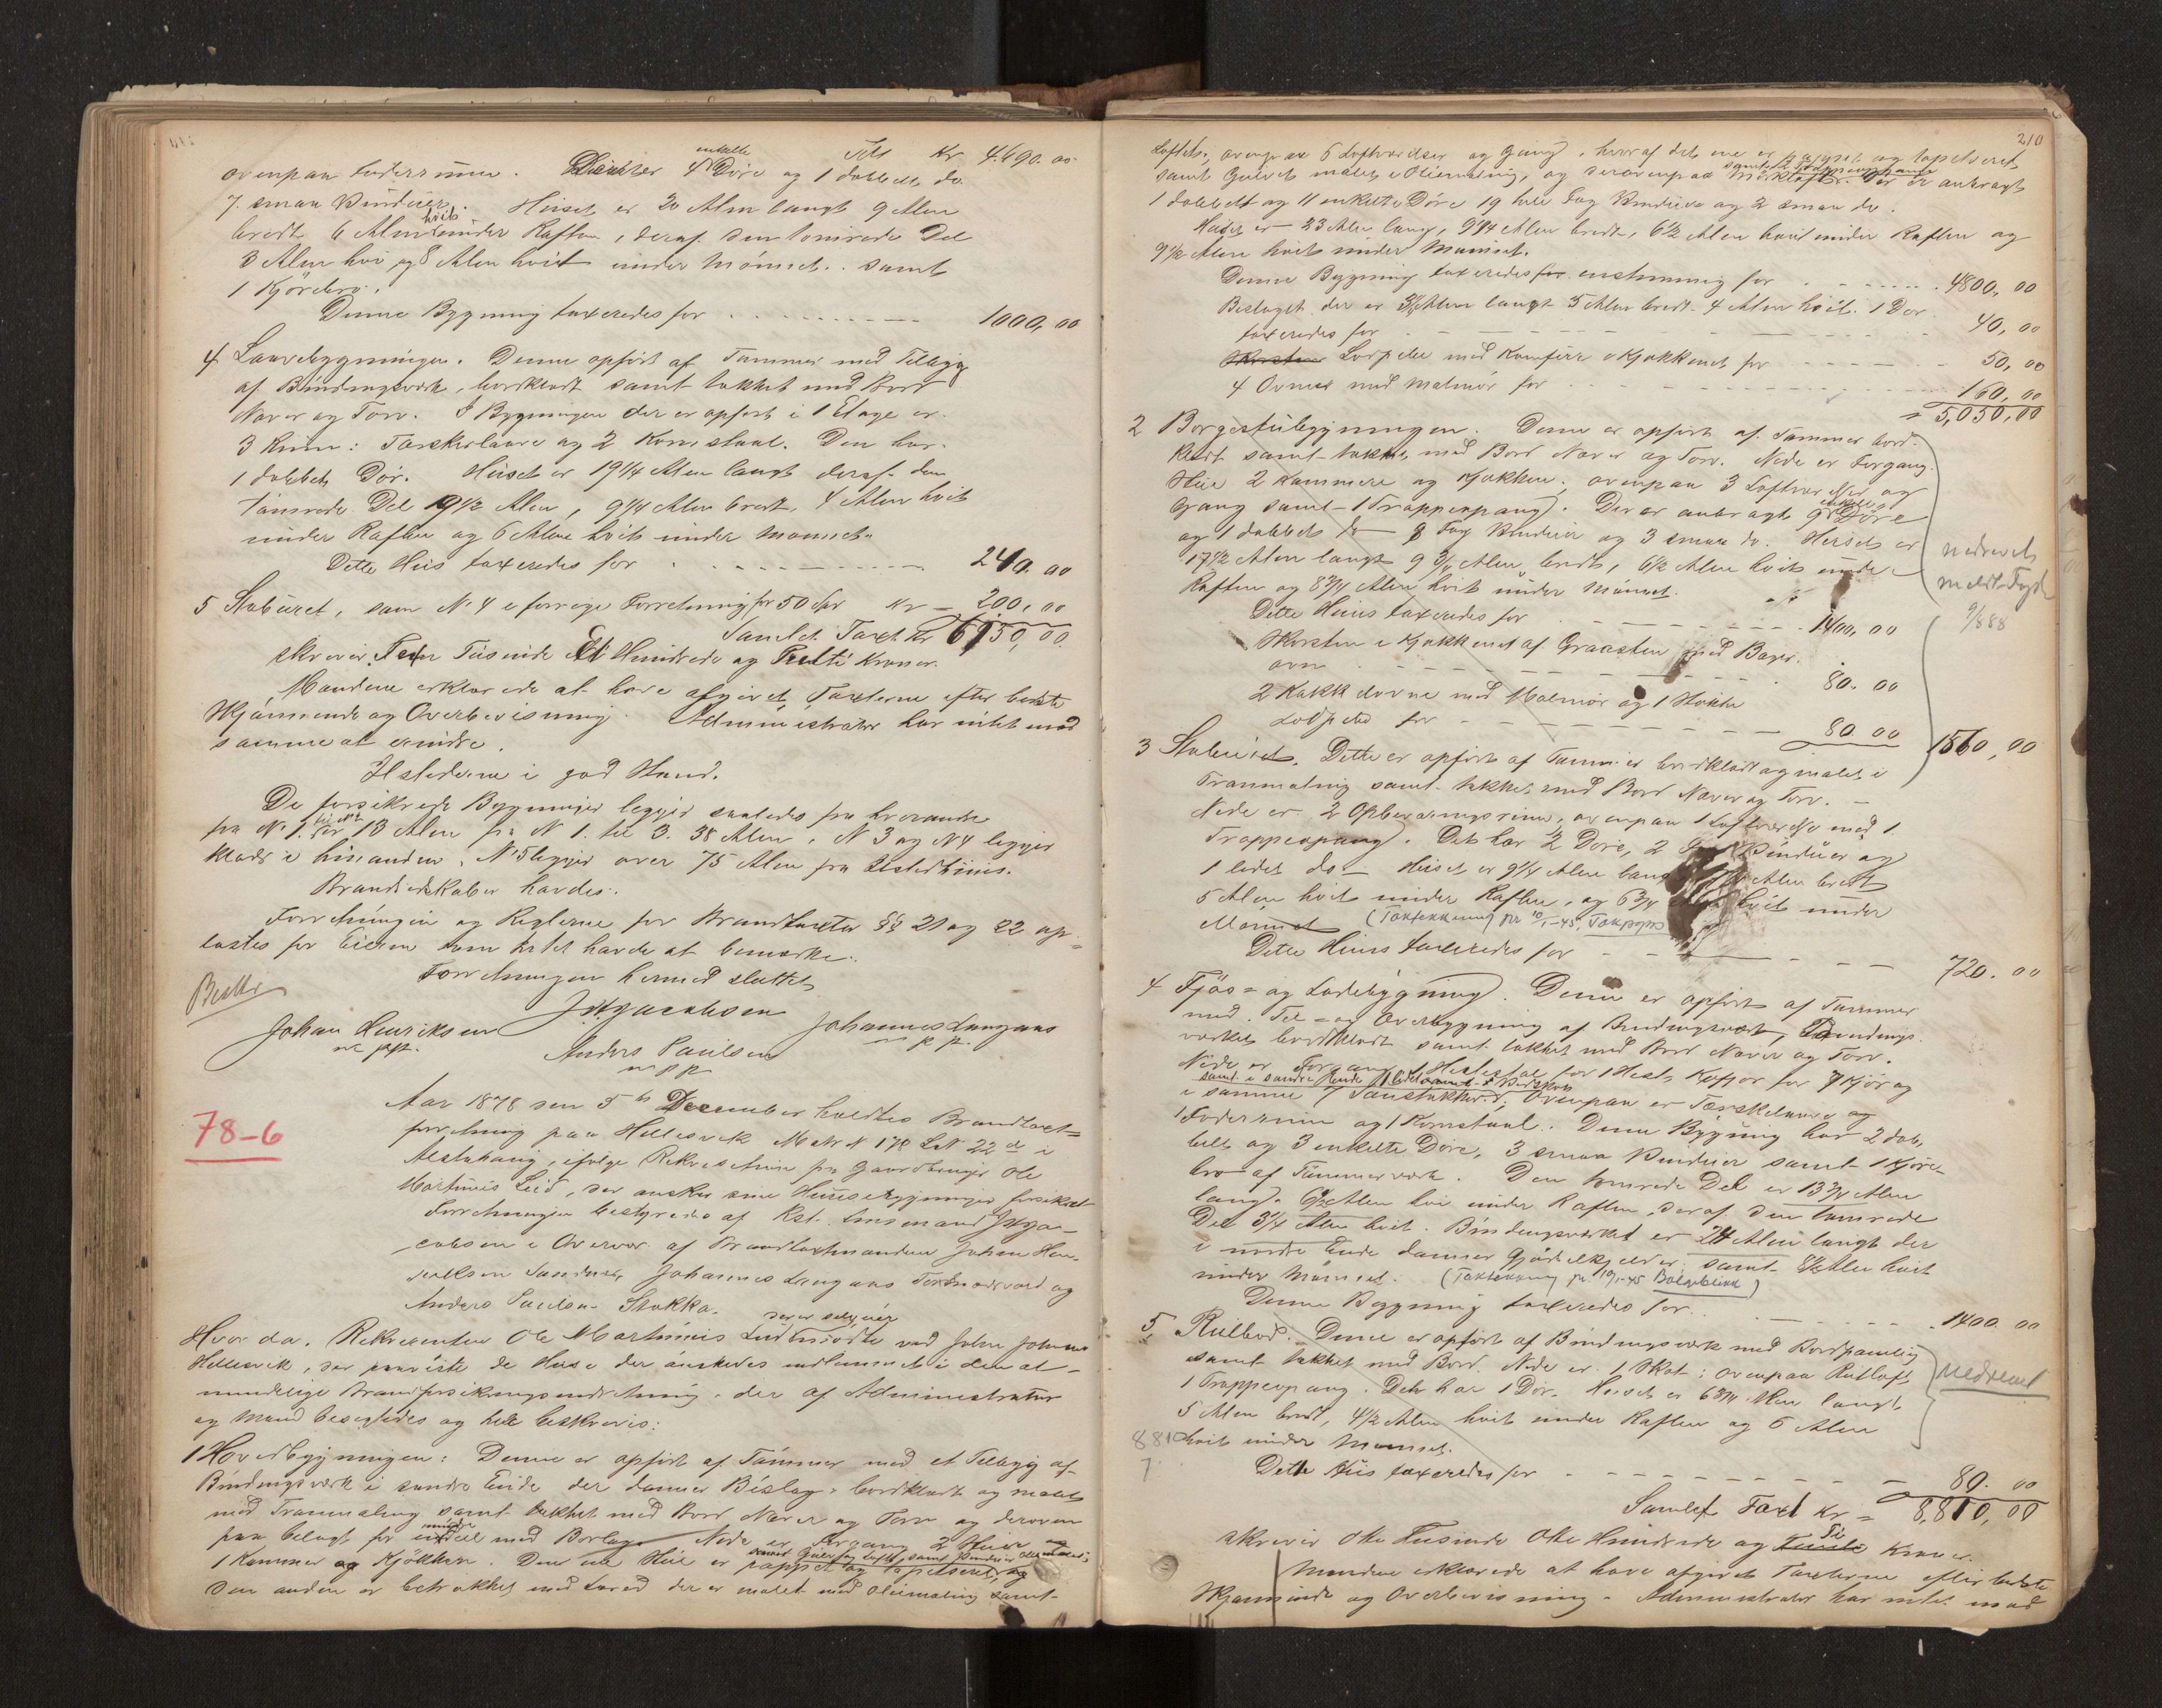 Tils Kr 4.690.00
ovenpaa foderrum. enkelte 4 Döre og 1 dobbelt do
7 smaa Vinduer. Huset er 20 Alen langt 9 Alen
bredt 6 Alen hvit under Raften, deraf den tomrede Del
3 Alen hvi og 8 Alen hvit under Mönnet. samt
1 Kjörebro.
Denne Bygning taxeredes for 1000,00
4 Lauvebygningen. Denne opfört af Tømmer med Tilbyg
af Bindingsverk, bordklædt samt tækket med Bord
Næver og Torv. I Bygningen der er opfört i 1 Etage er
3 Rum: Tærskerlaave og 2 Kornstaal. Den har
1 dobbelt Dör. Huset er 19 1/4 Alen langt deraf den
tömrede Del 9 1/2 Alen, 9 1/4 Alen bredt, 4 Alen hvit
under Raften og 6 Alen hvit under Mønnet.
Dette Hus taxeredes for 240.00
5 Stabüret, som N. 4 i forrige Forretning for 50 Spd Kr = 200,00
Samlet Taxt Kr 6130,00
skriver Sex Tusinde Et Hundrede og Kroner.
Mændene erklærede at have afgivet Taxterne efter bedste
Skjønnende og Overbevisning. Administrator har intet mod
samme at erindre.
Ildstederne i god Stand.
De forsikrede Bygninger ligger saaledes fra hverandre
fra N. 1 til N 2 er 13 Alen fra N 1. til 3. 38 Alen. N 3 og N 4 ligger
klods i hinanden, N. 5 ligger over 75 Alen fra Ildstedhuus.
Brandredskaber havdes.
Forretningen og Reglerne for Brandtaxter §§ 21 og 22 op-
læstes for Eieren som intet havde at bemærke.
Forretningen hermed sluttet
Beskr
J Hjacobsen
Johan Henriksen Johannes Langaas
m p p.
Anders Paulsen
m p p
78-6
Aar 1878 den 5te December holdtes Brandtaxt-
forretning paa Hellesvik Matr N 178 LN 22 d i
Alstahaug, ifølge Rekvisition fra Gaardbruger Ole
Martinus Lüd, der ønsker sine Huusebygninger forsikret
Forretningen bestyredes af Kst. Lensmand J Hja-
cobsen i Overvær af Brandtaxtmændene Johan Hen-
riksen Sandnes, Johannes Langaas og
Anders Paulsen Stokka.
Hvor da. Rekvirenten Ole Martinus Lüd mödte ved John Johnsen
Hellesvik, der paaviste de Huse der önskedes indlemmet i den al-
mindelige Brandforsikringsindretning, der af Administrator
og Mænd besigtedes og her beskrives:
1 Hovedbygningen: Denne er opfört af Tömmer med et Tilbyg af
Bindingsverk i søndre Ende der danner Bislag, bordklædt og malet
med Tranmaling samt tækket med Bord, Næver og Torv og derover
paa belagt for mindre Del med Bordtag. Nede er Forgang 2 Stuer
1 Kammer og Kjökken. Den ene Stue er pappet og tapetseret, og
den anden er betrukket med Lærred der er malet med Oliemaling samt
210
Loftet, ovenpaa 6 Loftværelser og Gang, hvoraf det ene er pappet og tapetseret,
samt Gulvet malet i Oliemaling, og derovenpaa Mørkloft. Der er anbragt
1 dobbelt og 11 enkelte Döre 19 hele Fag Vinduer og 2 smaa do.
Huset er 23 Alen lang, 9 1/4 Alen bredt, 6 1/2 Alen hvit under Raften og
9 1/2 Alen hvit under Mønnet.
Denne Bygning taxeredes for enstemmig for 4800,00
Bislaget der er 3 1/2 Alen langt 5 Alen bredt 4 Alen hvit. 1 Dør
taxeredes for 40,00
Lodpibe med Komfür i Kjøkkenet for 50,00
4 Ovner med Malmrör for 160,00
= 5,050,00
2 Borgestubygningen. Denne er opfört af Tømmer bord-
klædt samt tækket med Bord Næver og Torv. Nede er Forgang
Stue 2 Kammere og Kjøkken, ovenpaa 3 Loftværelser og
Gang samt 1 Trappeopgang. Der er anbragt 9 enkelte Döre
og 1 dobbelt do 8 Fag Vinduer og 3 smaa do. Huset er
17 1/2 Alen langt 9 3/4 Alen bredt, 6 1/2 Alen hvit under
Raften og 8 3/4 Alen hvit under Mönnet.
nedrevet
meldt Fogd
9/8 88
Dette Huus taxeredes for 1400,00
Skorsten i Kjøkkenet af Graasten med Bager-
ovn 80.00
2 Kakkelovne med Malmrör og 1 Støkke
Lodpibe for 80.00
1560,00
3 Stabüret. Dette er opfört af Tømmer bordklædt og malet i
Tranmaling samt tækket med Bord Næver og Torv.
Nede er 2 Opbevaringsrum, ovenpaa 1 Loftværelse med 1
Trappeopgang. Det har 2 Döre, 2 Vinduer og
1 lidet do. Huset er 9 1/4 Alen langt Alen bredt
5 Alen hvit under Raften, og 6 3/4 hvit under
Mönnet (Taktekking pr 10/1-45, Takpapp
Dette Huus taxeredes for 720.00
4 Fjös- og Ladebygning. Denne er opfört af Tømmer
med Til- og Overbygning af Bindingsverk, Bindings-
verket bordklædt samt tækket med Bord Næver og Torv.
Nede er Forgang 1 Hestestal for 1 Hest, for 7 Kjör og
samt i søndre Ende
i samme 7 . Ovenpaa er Tærskelaave og
1 Foderrum og 1 Kornstaal. Denne Bygning har 2 dob-
belt og 3 enkelte Döre, 3 smaa Vinduer samt 1 Kjöre-
bro af Tømmerverk. Den tomrede Del er 13 3/4 Alen
lang. 6 1/2 Alen hvi under Raften, deraf den tomrede
Del 3 1/4 Alen hvit. Bindingsverket er 24 Alen langt der
i nordre Ende danner Gjödselkjelder samt 8 1/2 Alen hvit
under Mønnet. (Taktekking pr. 10/1-45 Bølgeblikk)
Denne Bygning taxeredes for 1400.00
5 Rulbod. Denne er opfört af Bindingsverk med Bordpaneling
samt tækket med Bord. Nede er 1 Skot; ovenpaa Rulloft
1 Trappeopgang. Det har 1 Dör. Huset er 6 3/4 Alen langt
5 Alen bredt, 4 1/2 Alen hvit under Raften og 6 Alen
hvit under Mønnet.
nedrevet
8810
7
Dette Hüs taxeredes for 80.00
Samlet Taxt Kr = 8,810,00
skriver Otte Tusinde Otte Hundrede og Ti Kroner.
Mændene erklærede at have afgivet Taxterne efter bedste
Skjønnende og Overbevisning. Administrator har intet mod